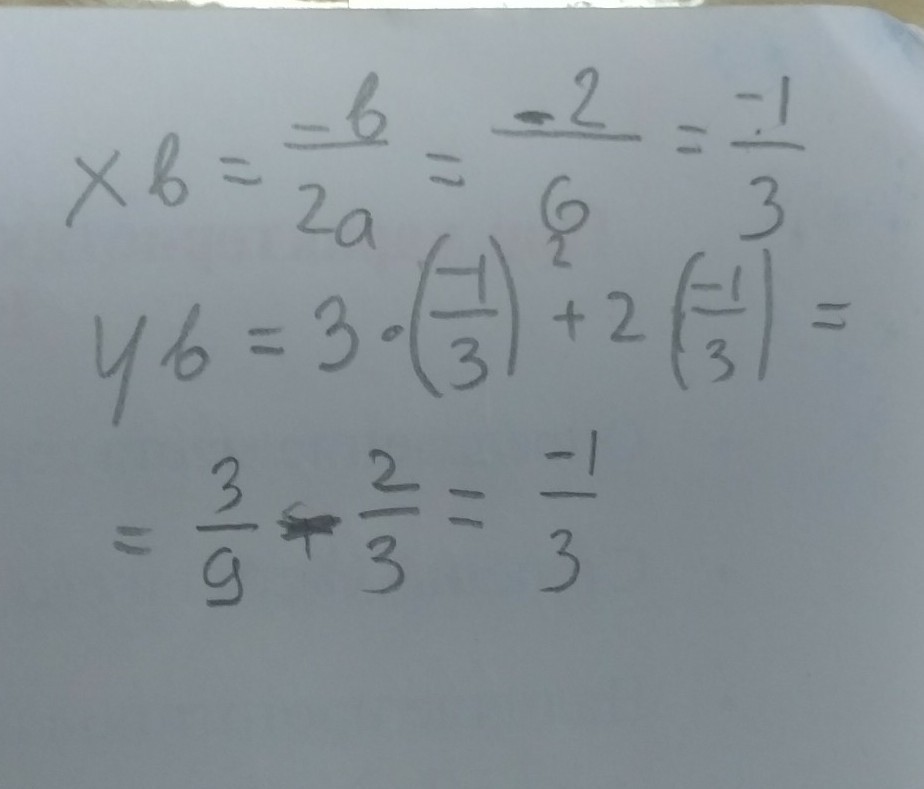 xв = -b/2a = -2/6 = -1/3
yв = 3·(-1/3)² + 2(-1/3) =
= 3/9 - 2/3 = -1/3